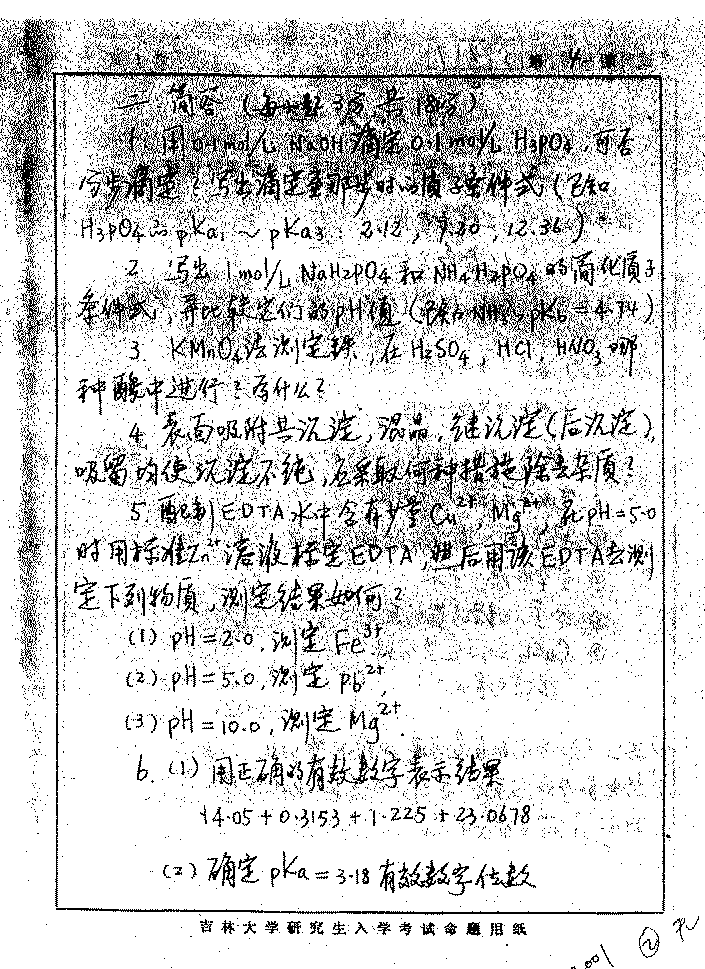 第 4 课
二 简答 (每小题3分 共18分)
1. 用0.1mol/L NaOH滴定0.1mol/L H3PO4, 可否
分步滴定? 写出滴定至那步时的质子条件式(已知
H3PO4的pKa1~pKa3: 2.12, 7.20, 12.36)
2. 写出1mol/L NaH2PO4和NH4H2PO4的简化质子
条件式, 并比较它们的pH值(已知NH3的pKb=4.74)
3. KMnO4法测定铁, 在H2SO4, HCl, HNO3哪
种酸中进行? 为什么?
4. 表面吸附共沉淀, 混晶, 继沉淀(后沉淀),
吸留均使沉淀不纯, 应采取何种措施除去杂质?
5. 配制EDTA水中含有少量Cu2+, Mg2+, 在pH=5.0
时用标准Zn2+溶液标定EDTA, 然后用该EDTA去测
定下列物质, 测定结果如何?
(1) pH=2.0, 测定Fe3+,
(2) pH=5.0, 测定Pb2+,
(3) pH=10.0, 测定Mg2+.
6. (1) 用正确的有效数字表示结果
14.05+0.3153+1.225+23.0678
(2) 确定pKa=3.18有效数字位数
吉林大学研究生入学考试命题用纸
001 ②